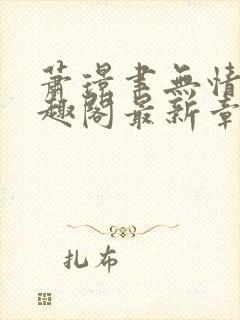 萧璟聿无情
趣阁最新章
扎布